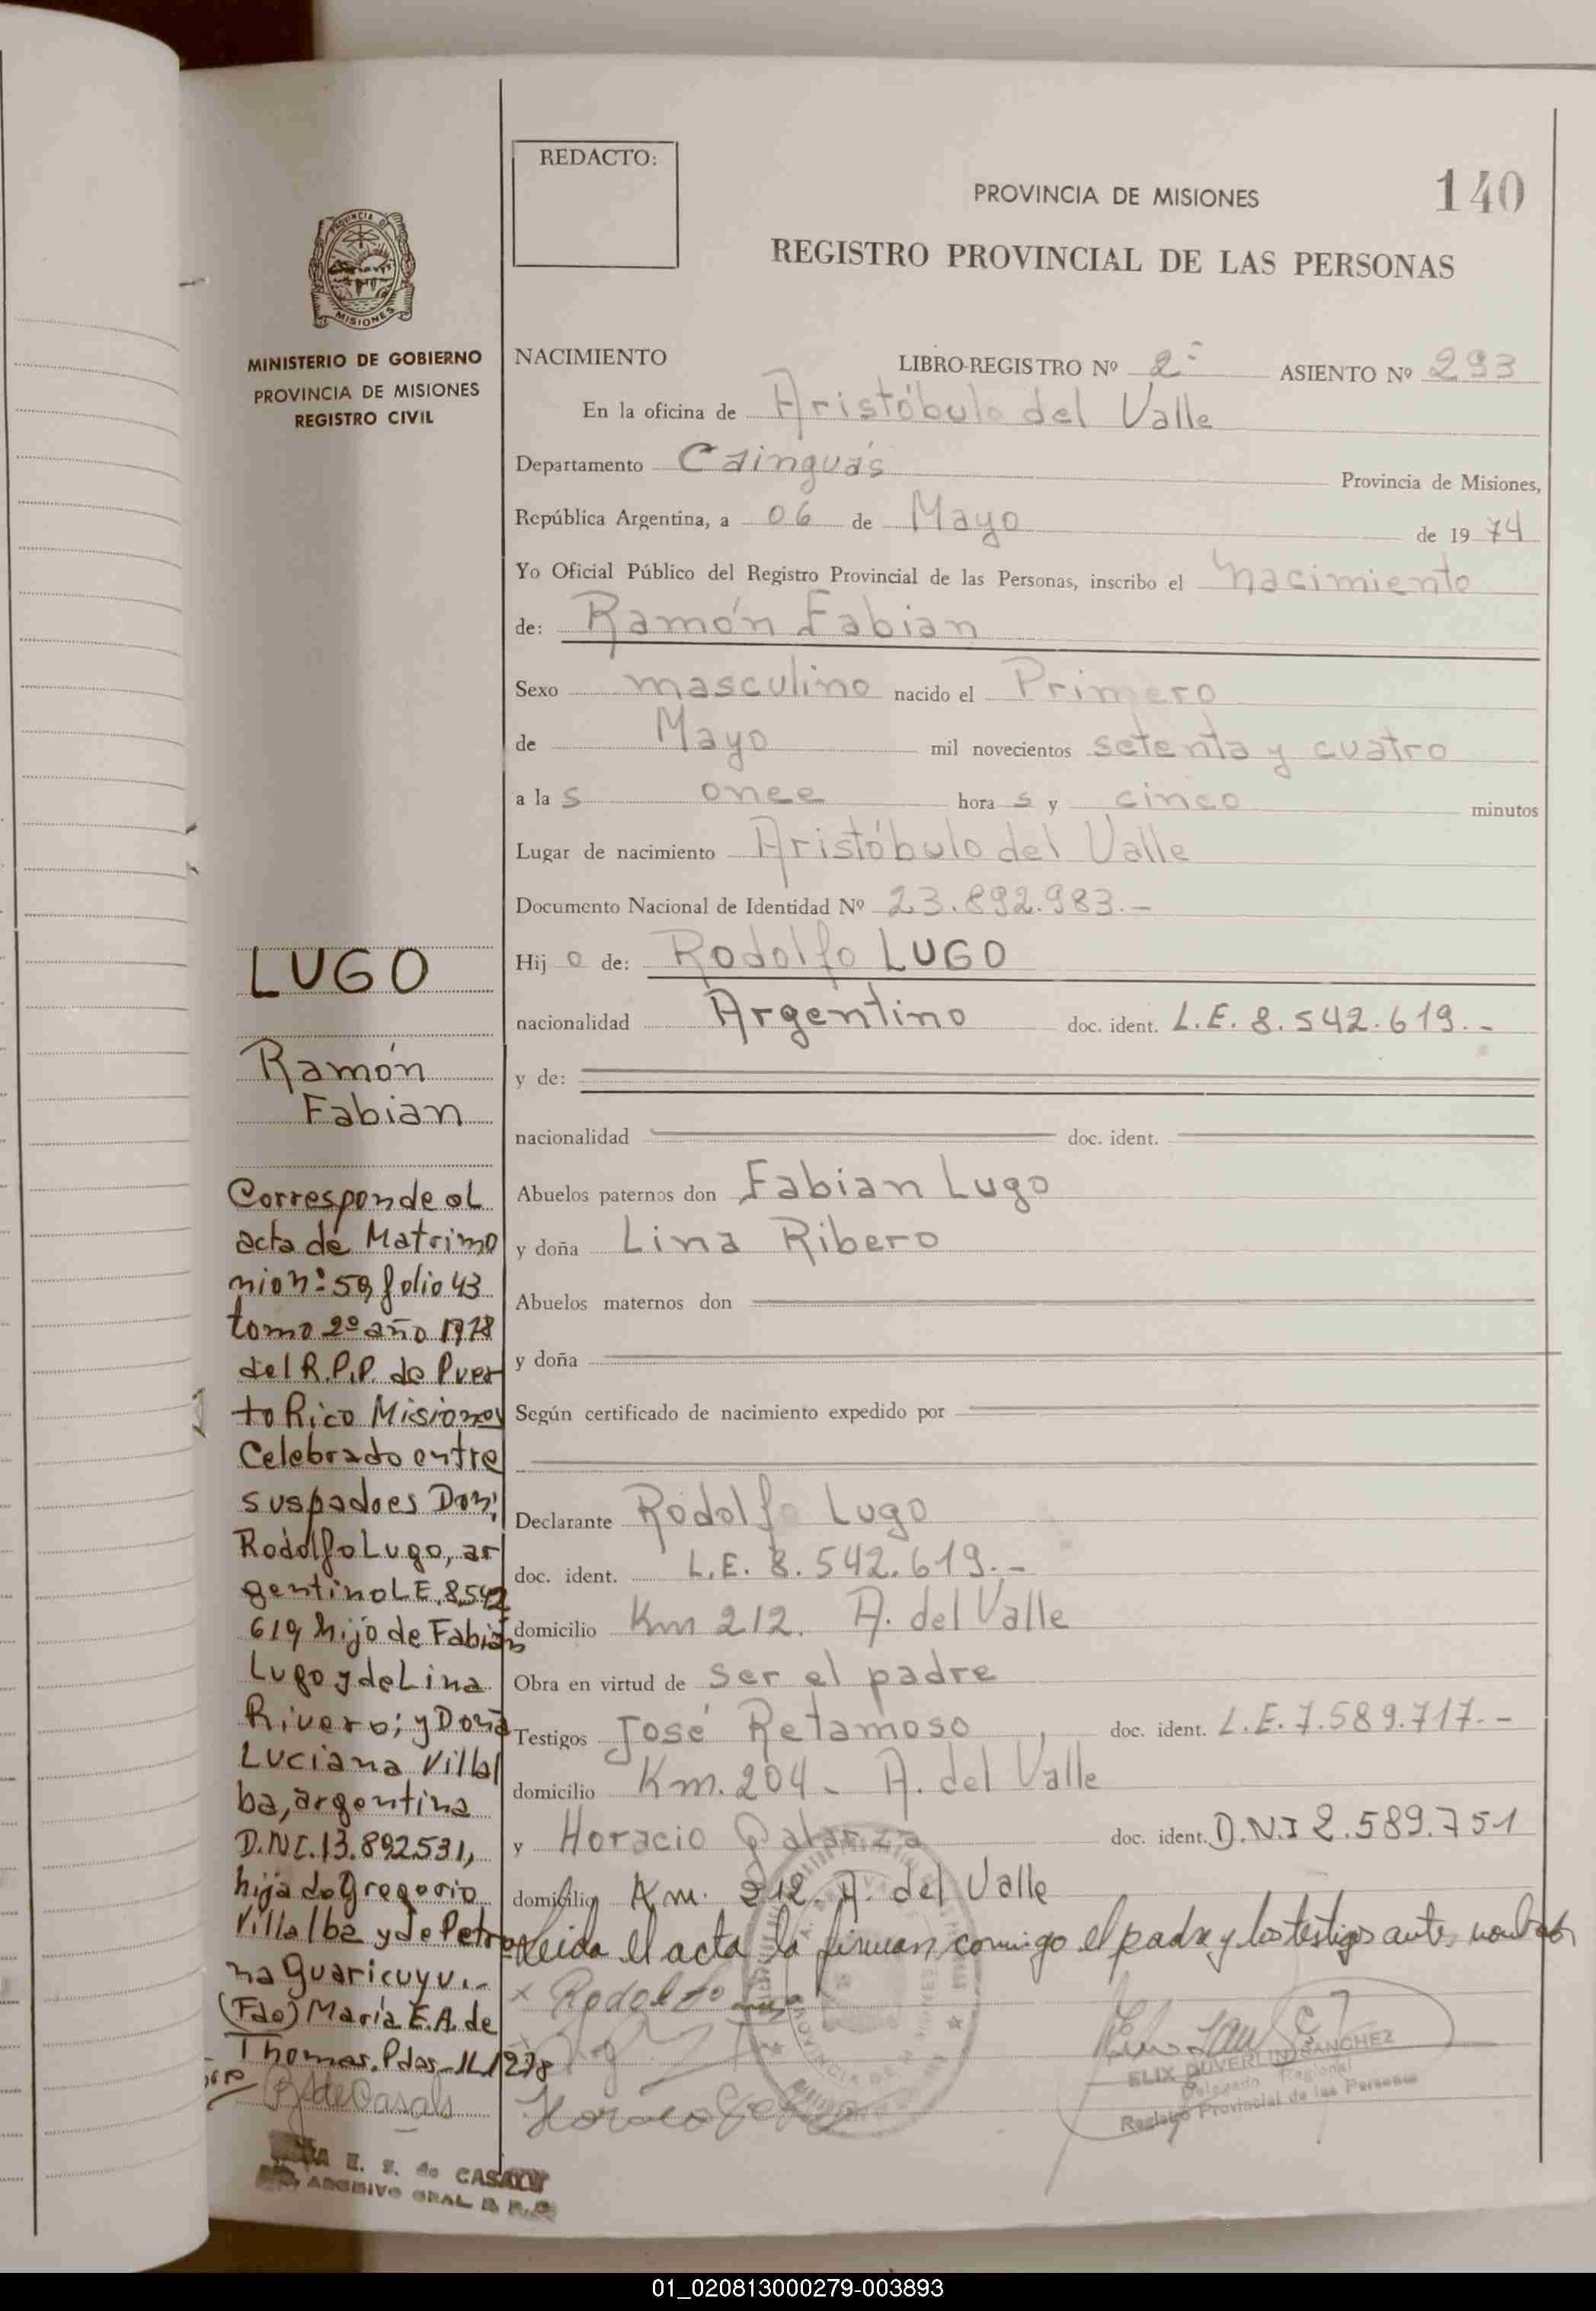 REDACTO:
140
PROVINCIA DE MISIONES
REGISTRO PROVINCIAL DE LAS PERSONAS
PROVINCIA DE
MISIONES
MINISTERIO DE GOBIERNO
PROVINCIA DE MISIONES
REGISTRO CIVIL
NACIMIENTO LIBRO-REGISTRO Nº 2º ASIENTO Nº 293
En la oficina de Aristóbulo del Valle
Departamento Cainguás Provincia de Misiones,
República Argentina, a 06 de Mayo de 1974
Yo Oficial Público del Registro Provincial de las Personas, inscribo el nacimiento
de: Ramón Fabian
Sexo masculino nacido el Primero
de Mayo mil novecientos setenta y cuatro
a las once horas y cinco minutos
Lugar de nacimiento Aristóbulo del Valle
Documento Nacional de Identidad Nº 23.892.983.-
Hijo de: Rodolfo LUGO
nacionalidad Argentino doc. ident. L.E. 8.542.619.-
y de:
nacionalidad doc. ident.
Abuelos paternos don Fabian Lugo
y doña Lina Ribero
Abuelos maternos don
y doña
Según certificado de nacimiento expedido por
Declarante Rodolfo Lugo
doc. ident. L.E. 8.542.619.-
domicilio Km 212. A. del Valle
Obra en virtud de ser el padre
Testigos José Retamoso, doc. ident. L.E. 7.589.717.-
domicilio Km. 204 - A. del Valle
y Horacio Galarza doc. ident. D.N.I 2.589.751
domicilio Km. 212. A. del Valle
Leida el acta la firman conmigo el padre y los testigos ante
x Rodolfo
ELIX DUVERLIN SANCHEZ
Delegado Regional
Registro Provincial de las Personas
LUGO
Ramón
Fabian
Corresponde al
acta de Matrimo
nio nº 59, folio 43
tomo 2º año 1978
del R.P.P. de Puer
to Rico Misiones
Celebrado entre
sus padres Don;
Rodolfo Lugo, ar
gentino L.E. 8.542
619 hijo de Fabián
Lugo y de Lina
Rivero; y Doña
Luciana Villal
ba, argentina
D.N.I. 13.892.531,
hija de Gregorio
Villalba y de Petro
na Guaricuyu.-
(Fdo) María E.A. de
Thomas. Pdas-
de Casals
E. S. de CASALS
ARCHIVO GRAL R. P. P.
01_020813000279-003893